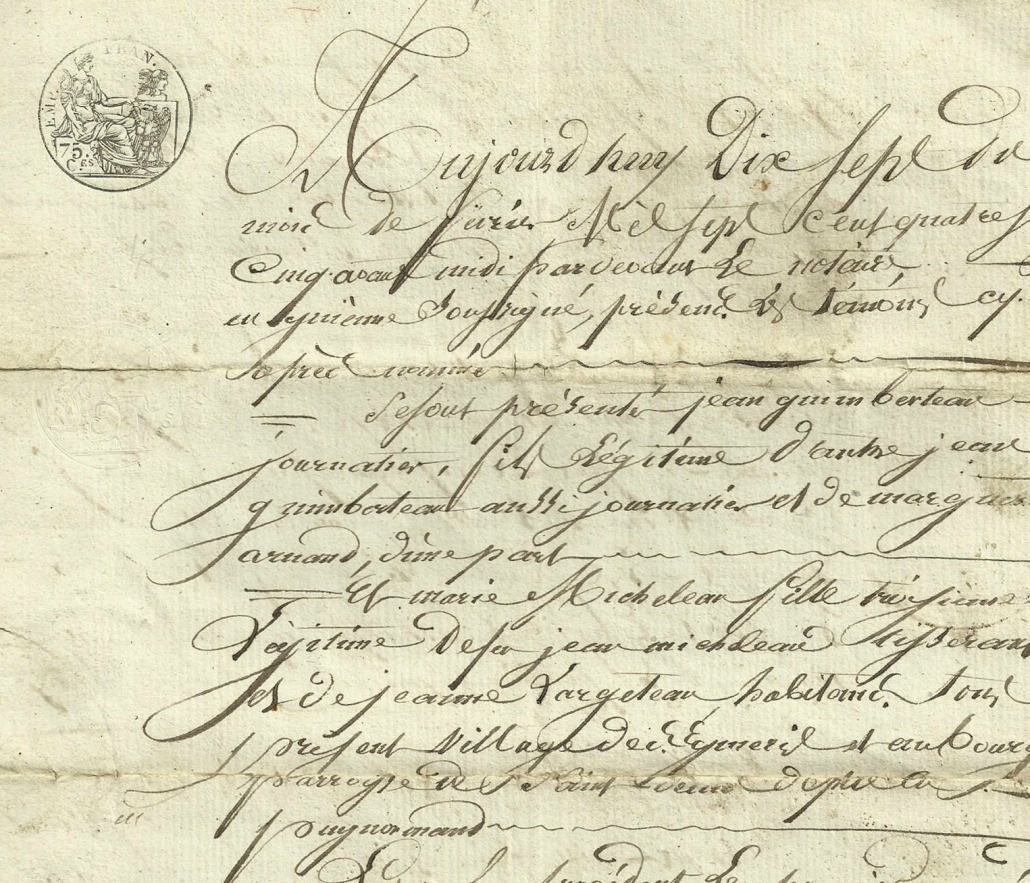 EMP. FRAN.
75. C.ES
Aujourd'huy Dix sept du
mois de fevrier Mil sept cent quatre
Cinq avant midi pardevant Le notaire
en Guienne Soussigné, présents Les témoins cy.
après nommés
Se sont présentés jean guimberteau
journalier, fils Légitime d'autre jean
guimberteau aussi journalier et de marguer
arnaud, d'une part
Et marie Micheleau fille
Légitime De feu jean micheleau tisseran
et de jeanne Largeteau, habitants Tous
présent Village des Eymeris et au bourg
parroysse de Saint
puynormand